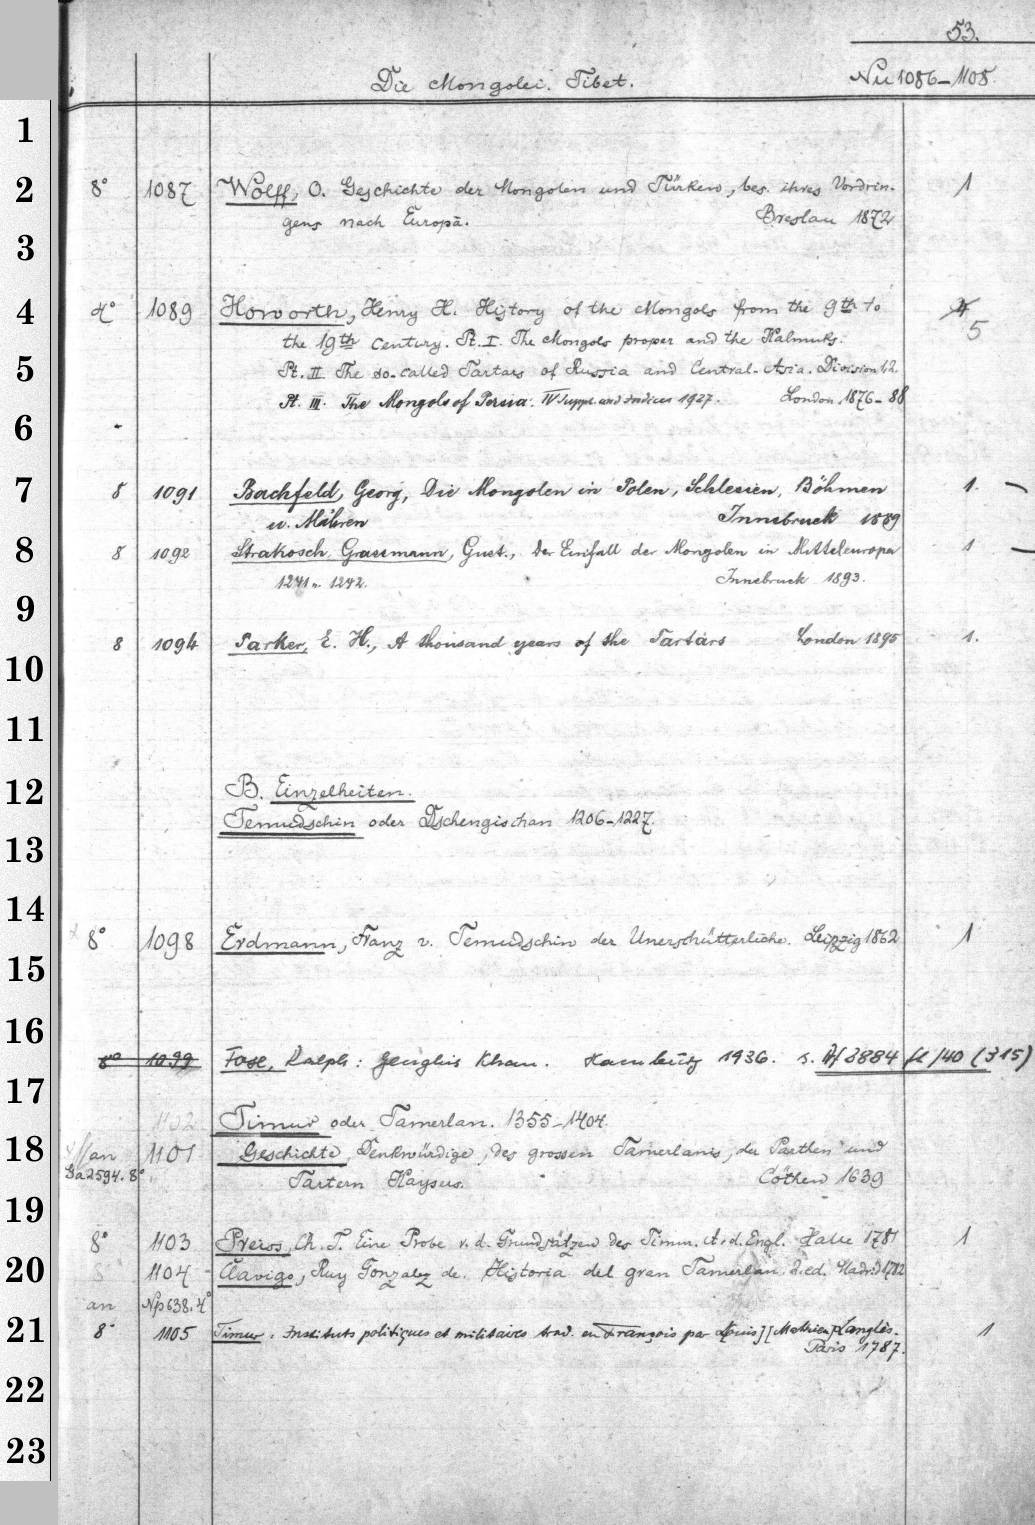 53.
Die Mongolei. Tibet. Nu 1086-1108.
1
2 8° 1087 Wolff, O. Geschichte der Mongolen und Türken, bes. ihres Vordrin- 1
gens nach Europa. Breslau 1872
3
4 4° 1089 Howorth, Henry H. History of the Mongols from the 9th to 4
the 19th Century. Pt. I. The Mongols proper and the Kalmuks. 5
5 Pt. II The so-called Tartars of Russia and Central-Asia. Division 1.2
Pt. III. The Mongols of Persia. IV Suppl. and Indices 1927. London 1876-88
6
7 8 1091 Bachfeld, Georg, Die Mongolen in Polen, Schlesien, Böhmen 1.
u. Mähren Innsbruck 1889
8 8 1092 Strakosch Grassmann, Gust., Der Einfall der Mongolen in Mitteleuropa 1
1241 u. 1242. Innsbruck 1893.
9
8 1094 Parker, E. H., A thousand years of the Tartars London 1895 1.
10
11
12 B. Einzelheiten.
Temudschin oder Dschengischan 1206-1227.
13
14
8° 1098 Erdmann, Franz v. Temudschin der Unerschütterliche. Leipzig 1862 1
15
16
8° 1099 Fose, Ralph: Genghis Khan. Hamburg 1936. s. 3884 /40 (315)
17
1102 Timur oder Tamerlan. 1355-1404.
18 an 1101 Geschichte, Denkwürdige, des grossen Tamerlanis, der Parthen und
2594. 8° Tartern Kaysers. Cöthen 1639
19
8° 1103 Preiss, Ch. T. Eine Probe v. d. Grundsätzen des Timur. A. d. Engl. Halle 1781 1
20 8° 1104 Clavigo, Ruy Gonzalez de. Historia del gran Tamerlan. 2. ed. Madrid 1782
an Np 638. 4°
21 8° 1105 Timur: Instituts politiques et militaires trad. en François par L[ouis] [Mathieu] Langlès. 1
Paris 1787.
22
23